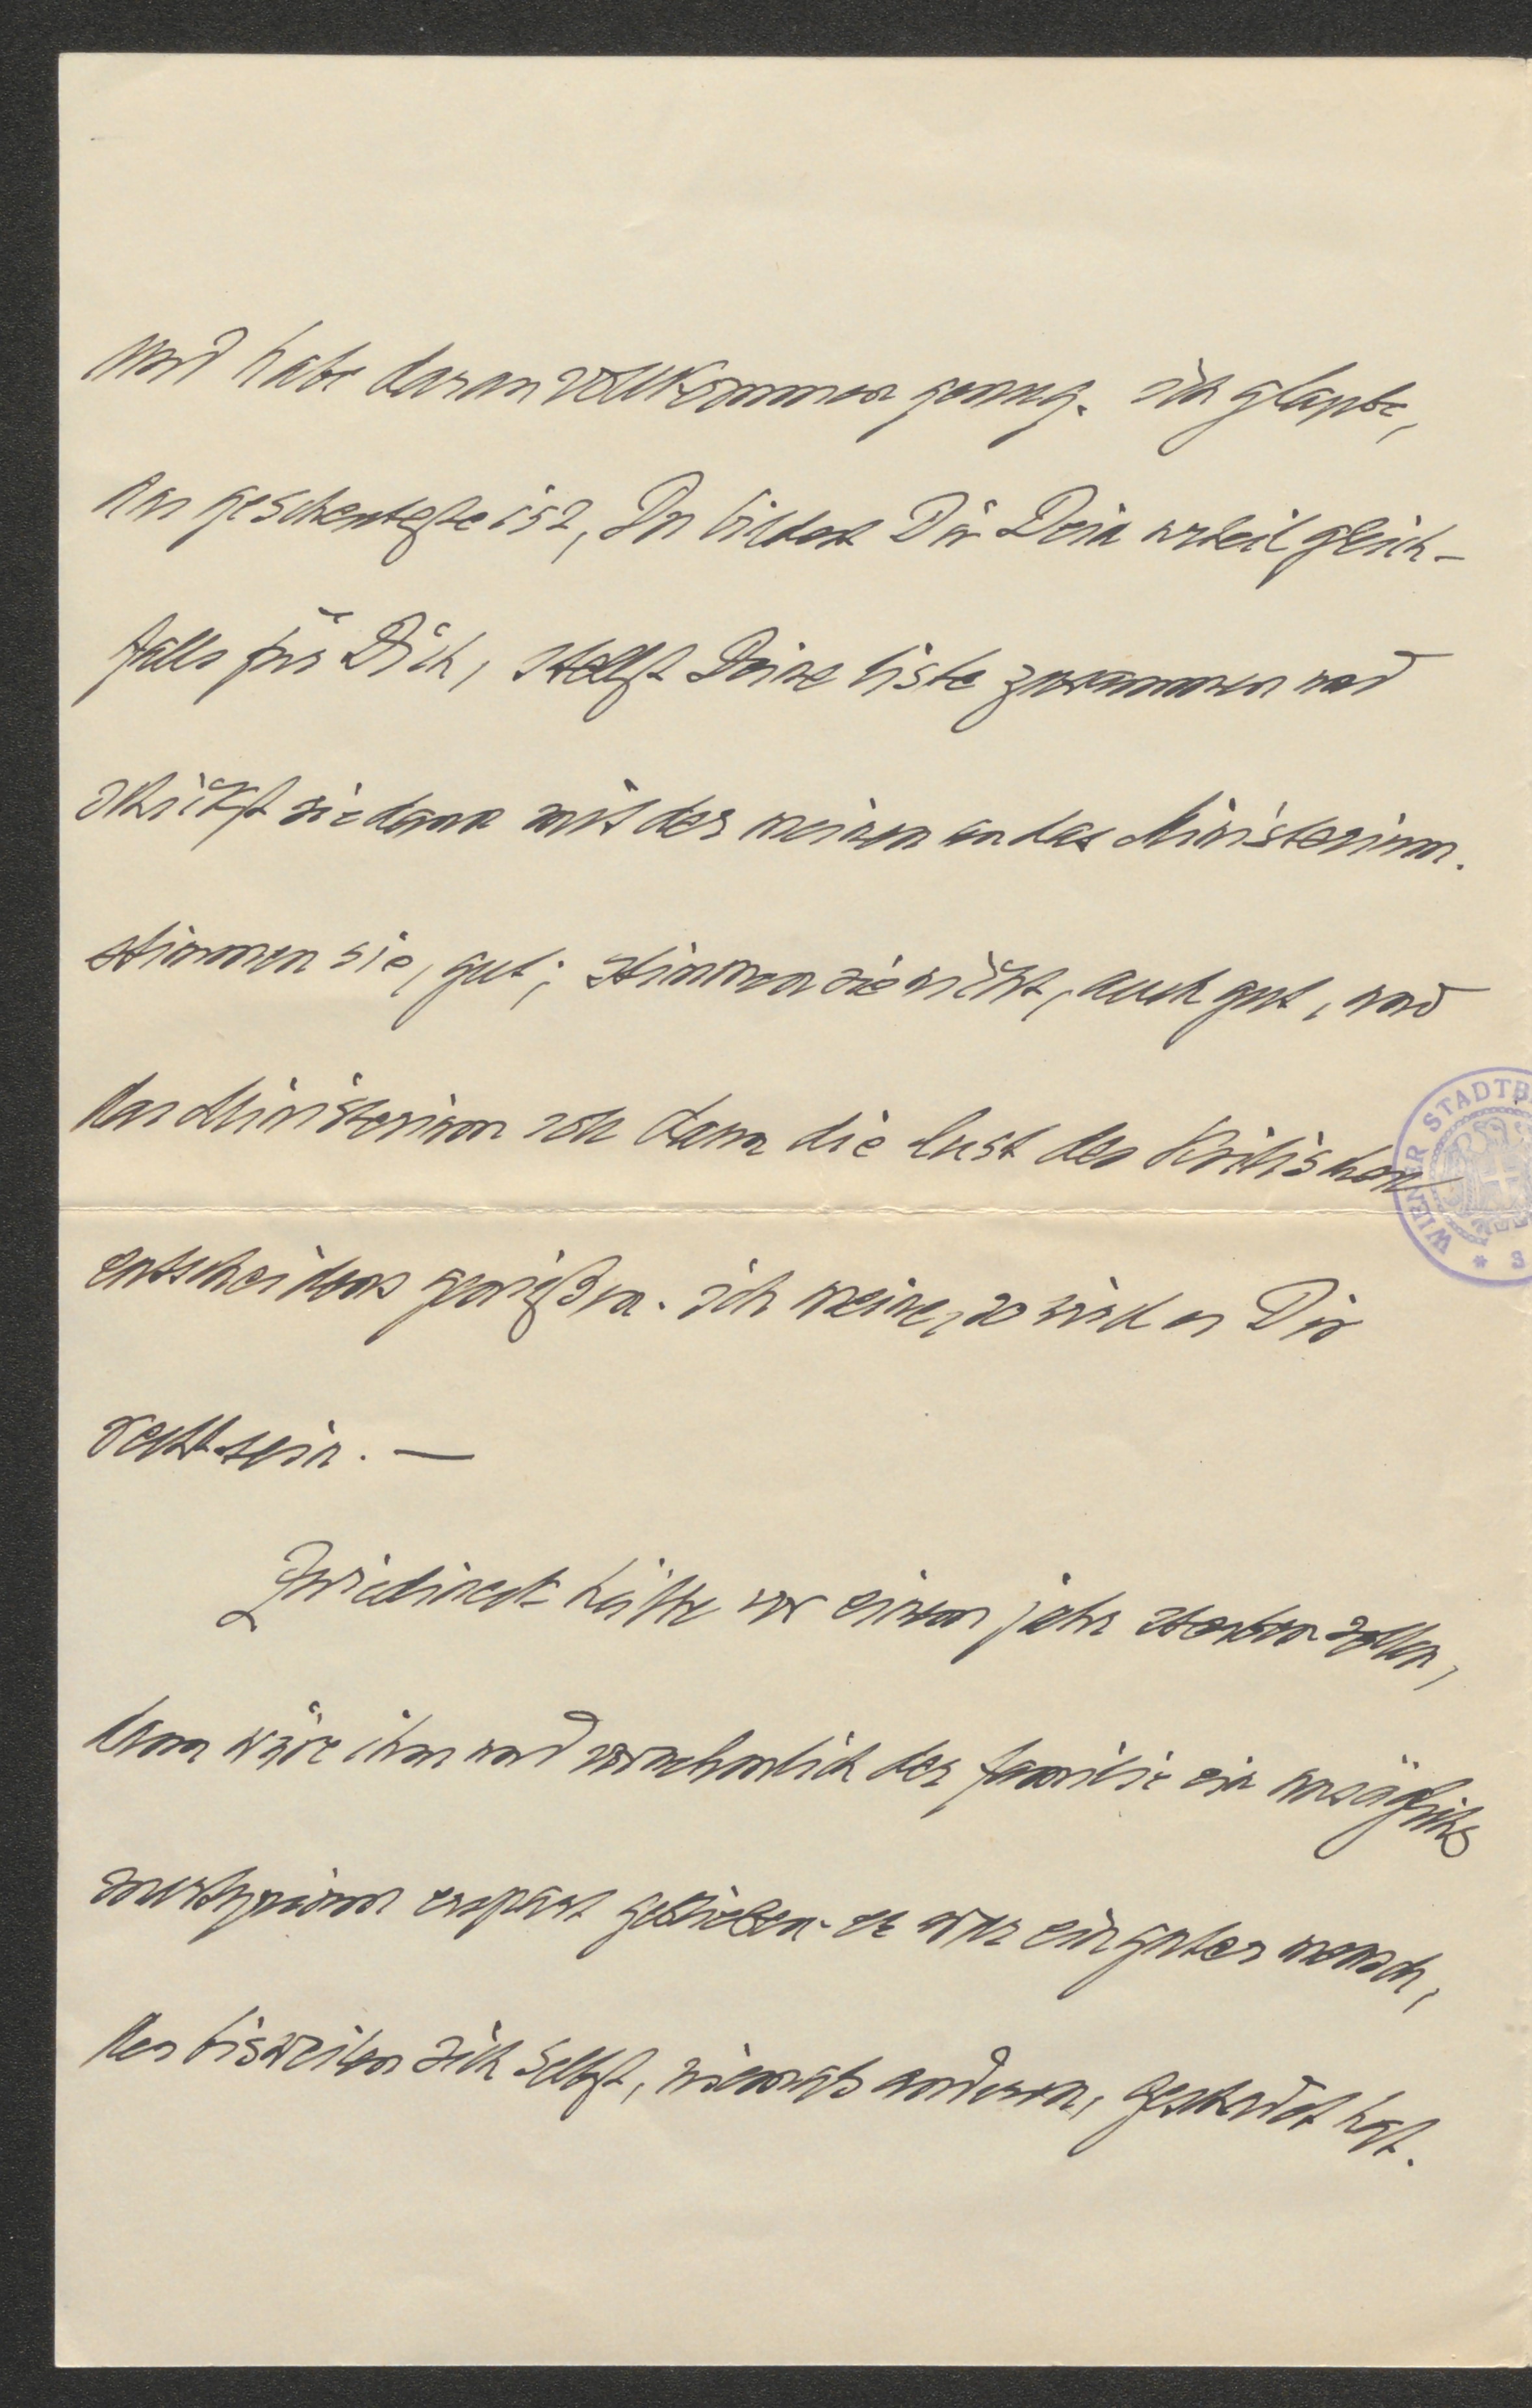 und habe daran vollkommen genug. ich glaube,
das gescheuteste ist, Du bildest Dir Dein urteil gleich-
falls für Dich, stellst Deine liste zusammen und
schickst sie dann mit der meinen an das Ministerium.
stimmen sie, gut; stimmen sie nicht, auch gut, und
das Ministerium soll dann die lust des kritischen
entscheidens genießen. ich meine, so wird es Dir
recht sein. —
Zwiedineck hätte vor einem jahr sterben sollen,
dann wäre ihm und vornehmlich der familie ein unsägliches
martyrium erspart geblieben. er war ein guter mensch,
der bisweilen sich selbst, niemals anderen, geschadet hat.
WIENER STADTB